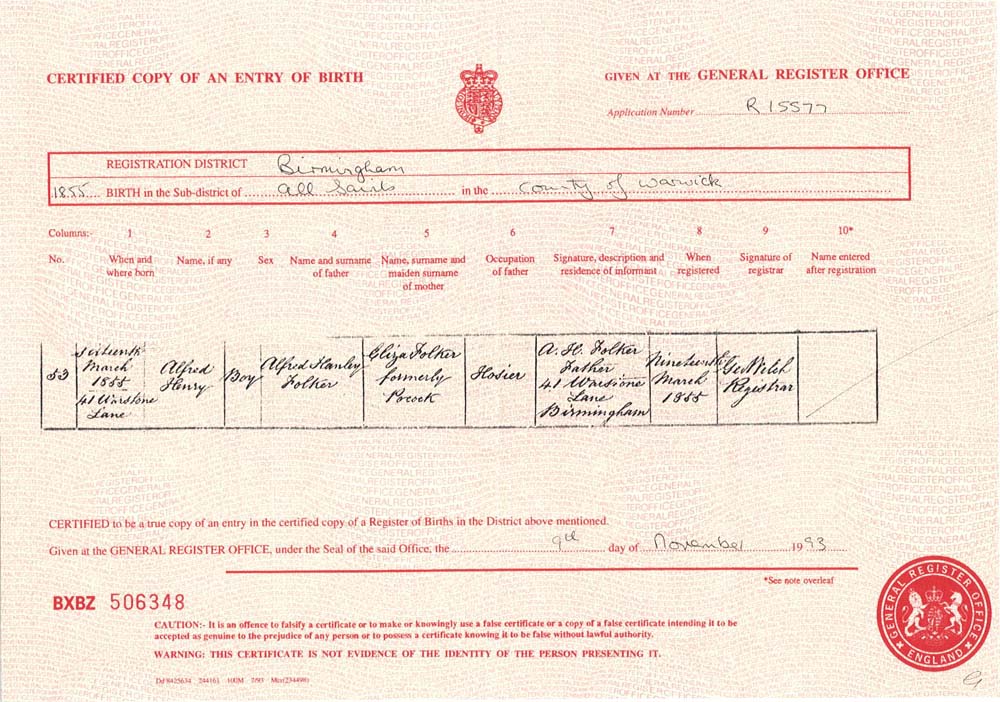 CERTIFIED COPY OF AN ENTRY OF BIRTH
GIVEN AT THE GENERAL REGISTER OFFICE
Application Number R 15577
REGISTRATION DISTRICT Birmingham
1855 BIRTH in the Sub-district of All Saints in the County of Warwick
Columns:- 1 2 3 4 5 6 7 8 9 10*
No. When and where born Name, if any Sex Name and surname of father Name, surname and maiden surname of mother Occupation of father Signature, description and residence of informant When registered Signature of registrar Name entered after registration
53
March
1855
41 Warstone
Lane
Alfred
Henry
Boy
Alfred Hanley
Folker
Eliza Folker
formerly
Pocock
Hosier
A. H. Folker
Father
41 Warstone
Lane
Birmingham
Nineteenth
March
1855
Registrar
CERTIFIED to be a true copy of an entry in the certified copy of a Register of Births in the District above mentioned.
Given at the GENERAL REGISTER OFFICE, under the Seal of the said Office, the 9th day of November 1993
*See note overleaf
BXBZ 506348
CAUTION:- It is an offence to falsify a certificate or to make or knowingly use a false certificate or a copy of a false certificate intending it to be
accepted as genuine to the prejudice of any person or to possess a certificate knowing it to be false without lawful authority.
WARNING: THIS CERTIFICATE IS NOT EVIDENCE OF THE IDENTITY OF THE PERSON PRESENTING IT.
Dd 8425634 244161 100M 7/93 Mcr(234498)
GENERAL REGISTER OFFICE
ENGLAND